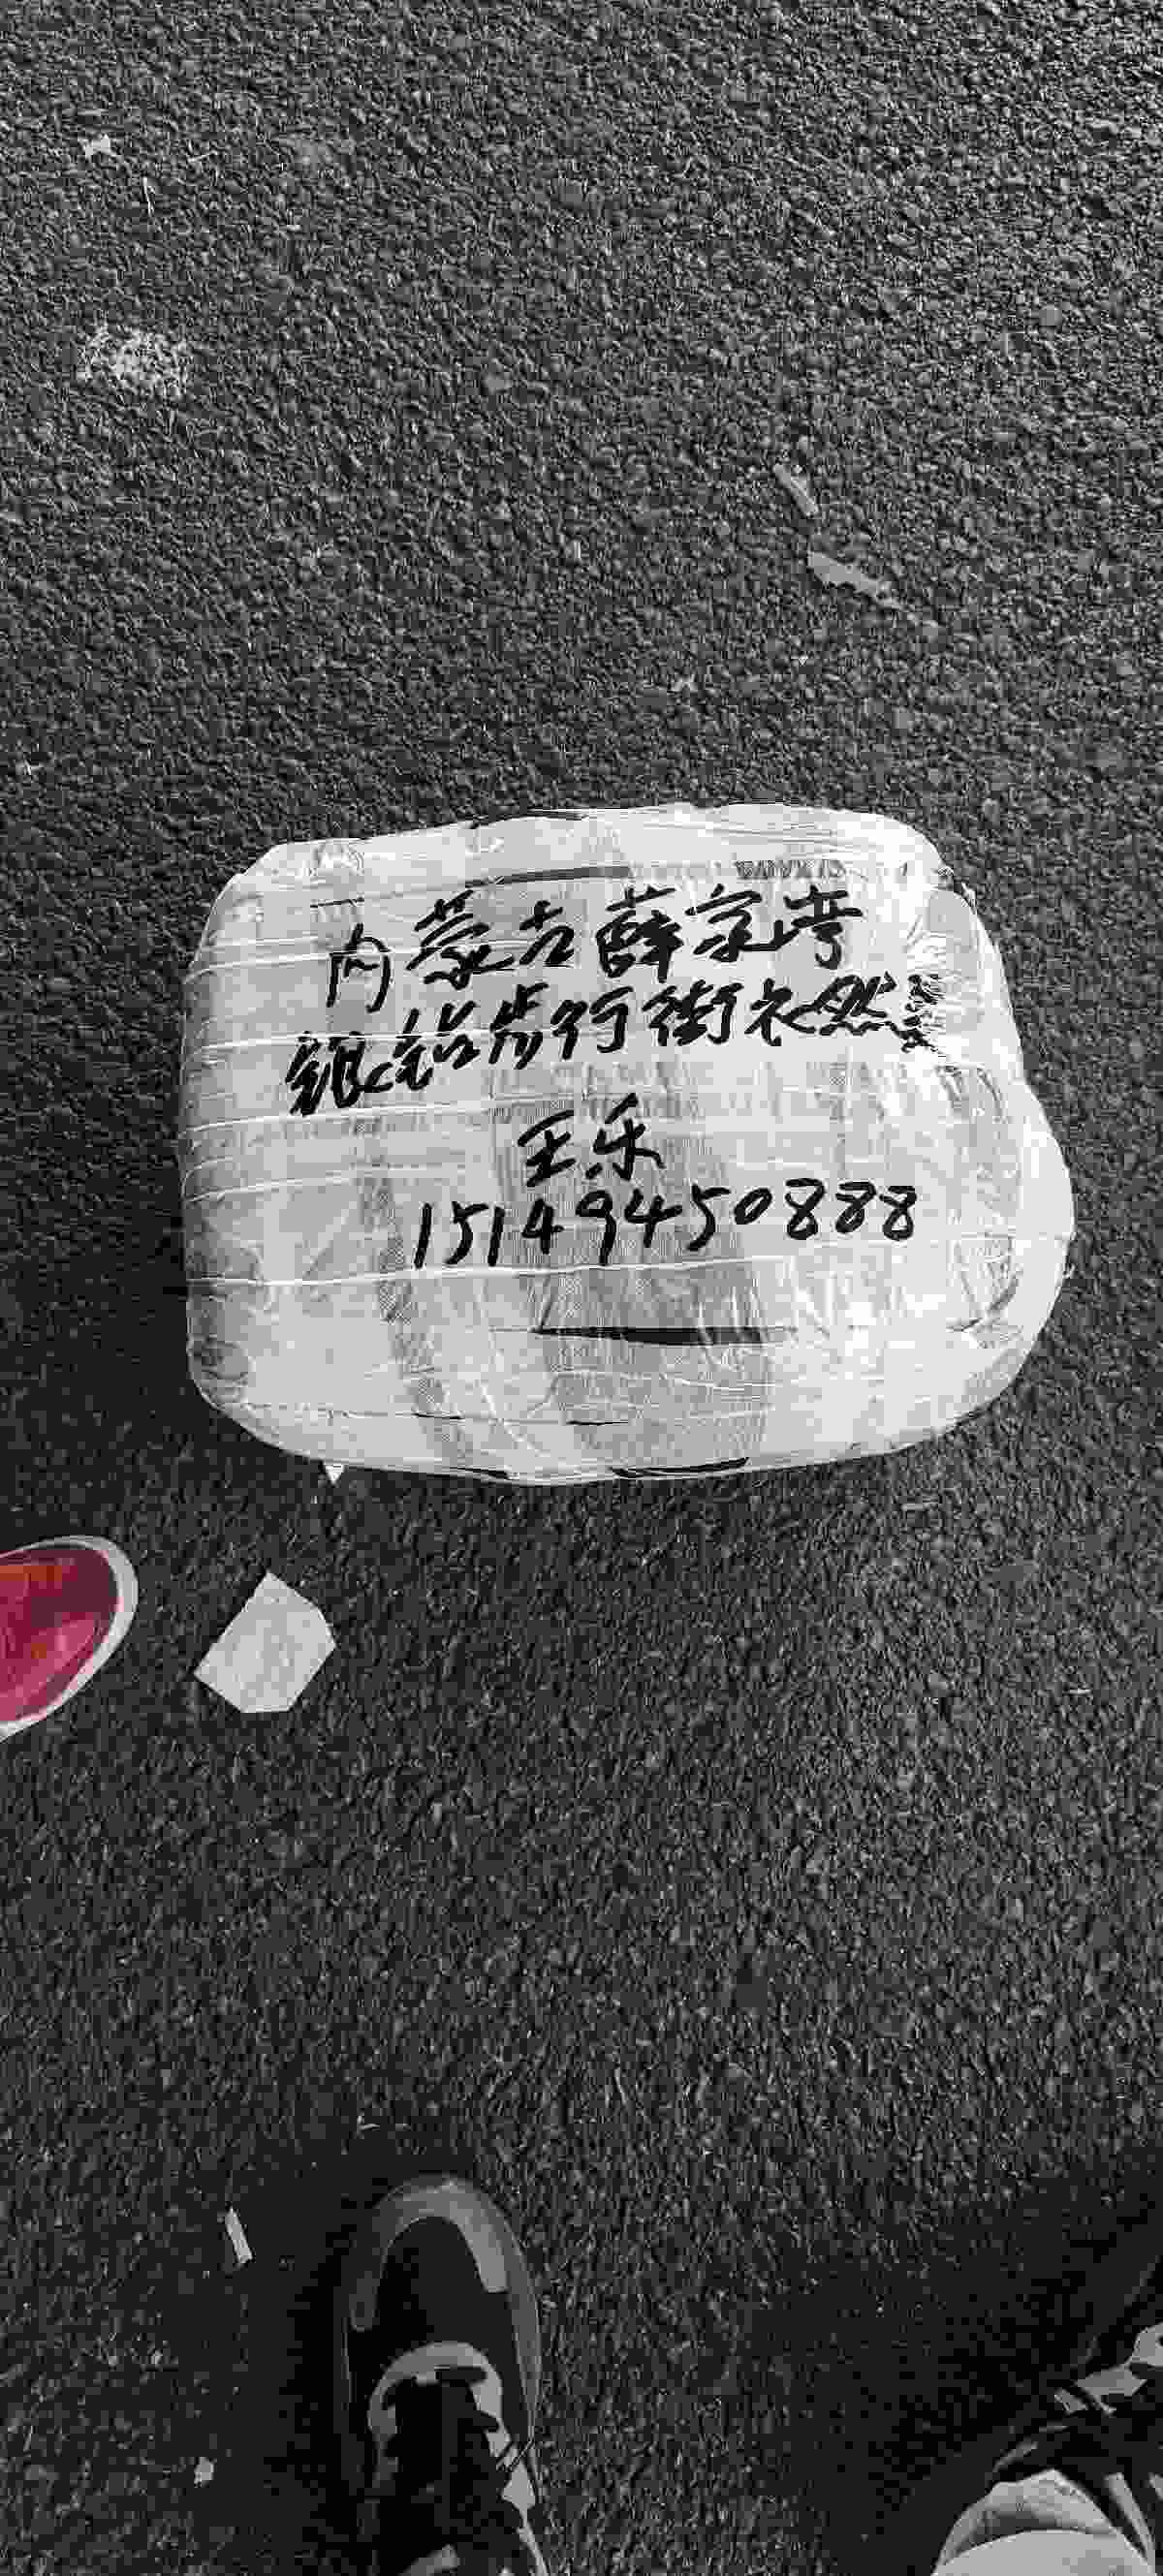 内蒙古薛家湾
银铭步行街衣然
王乐
15149450888